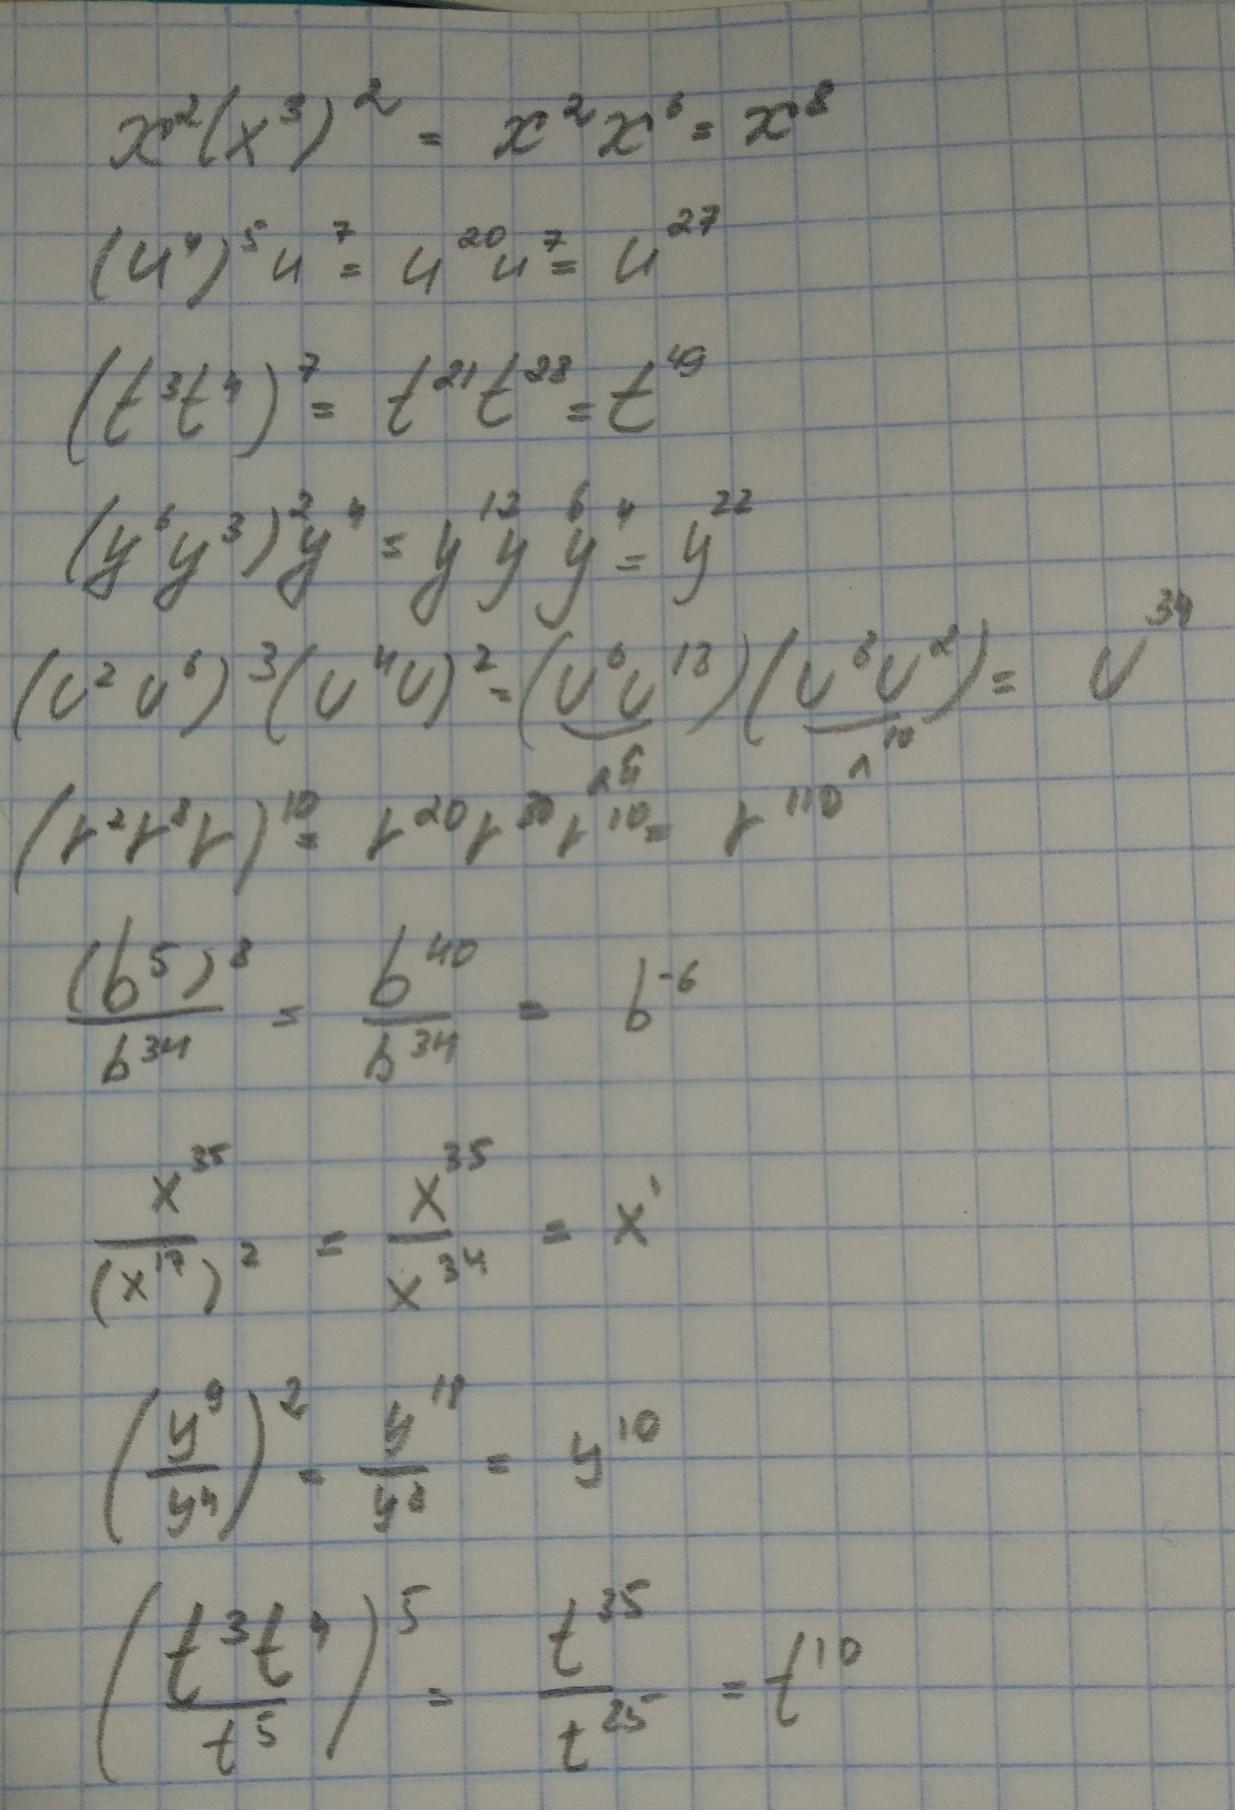 x²(x³)² = x²x⁶ = x⁸
(u⁴)⁵u⁷ = u²⁰u⁷ = u²⁷
(t³t⁴)⁷ = t²¹t²⁸ = t⁴⁹
(y⁶y³)²y⁴ = y¹²y⁶y⁴ = y²²
(v²v⁶)³(v⁴v)² = (v⁶v¹⁸)(v⁸v²) = v³⁴
24 10
(r²r⁸r)¹⁰ = r²⁰r⁸⁰r¹⁰ = r¹¹⁰
(b⁵)⁸/b³⁴ = b⁴⁰/b³⁴ = b⁻⁶
x³⁵/(x¹⁷)² = x³⁵/x³⁴ = x¹
(y⁹/y⁴)² = y¹⁸/y⁸ = y¹⁰
(t³t⁴/t⁵)⁵ = t³⁵/t²⁵ = t¹⁰